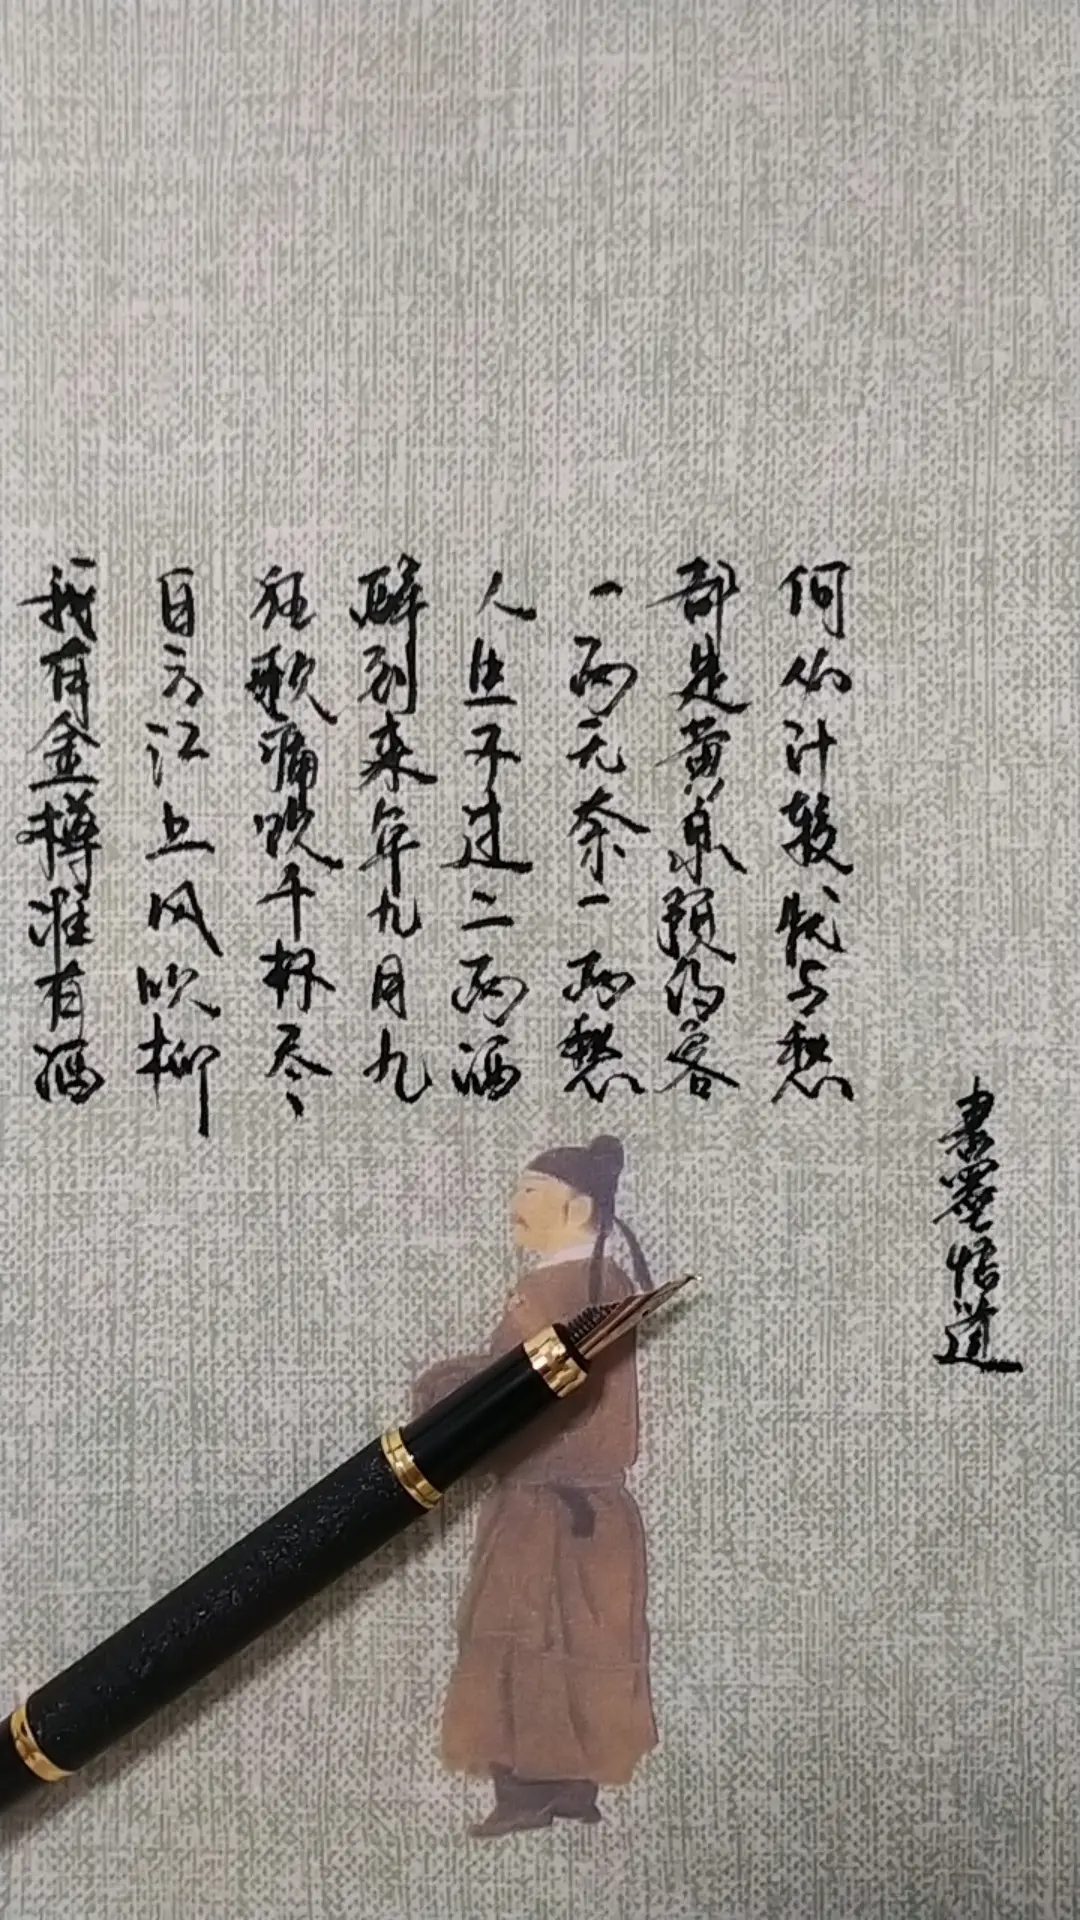 我有金樽谁有酒
自言江上风吹柳
狂歌痛饮千杯尽
醉到来年九月九
人生不过二两酒
一两无奈一两愁
都是黄泉预约客
何必计较忧与愁
書墨悟道